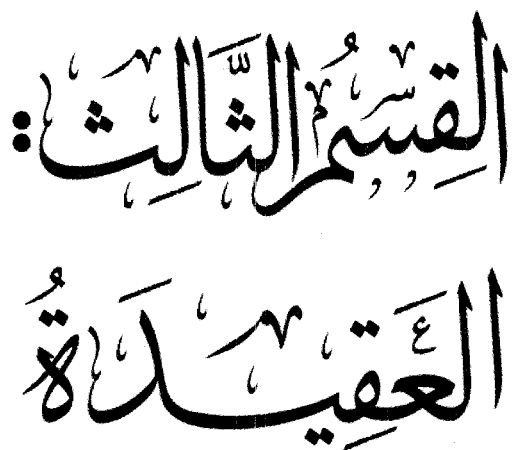 القِسْمُ الثَّالِثُ:
العَقِيدَةُ